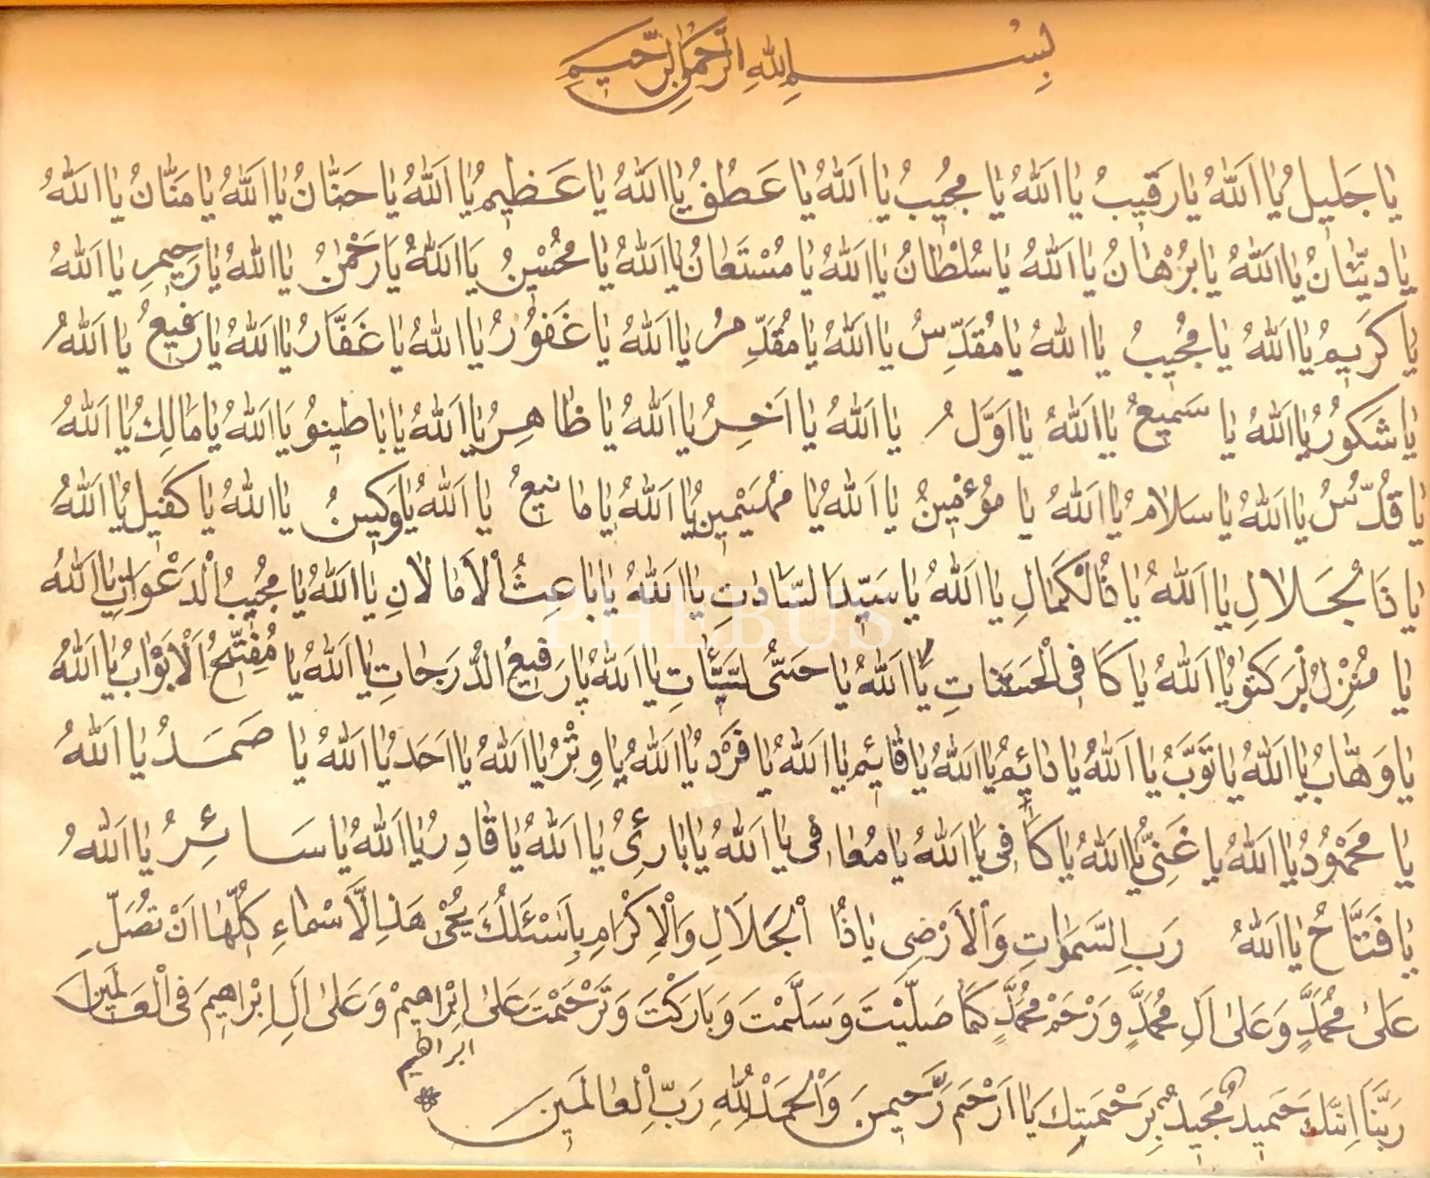 بِسْمِ اللهِ الرَّحْمٰنِ الرَّحِيمِ
يَا جَلِيلُ يَا اَللهُ يَا رَقِيبُ يَا اَللهُ يَا مُجِيبُ يَا اَللهُ يَا عَطُفُ يَا اَللهُ يَا عَظِيمُ يَا اَللهُ يَا حَنَّانُ يَا اَللهُ يَا مَنَّانُ يَا اَللهُ
يَا دَيَّانُ يَا اَللهُ يَا بُرْهَانُ يَا اَللهُ يَا سُلْطَانُ يَا اَللهُ يَا مُسْتَعَانُ يَا اَللهُ يَا مُحْسِنُ يَا اَللهُ يَا رَحْمٰنُ يَا اَللهُ يَا رَحِيمِ يَا اَللهُ
يَا كَرِيمُ يَا اَللهُ يَا مُجِيبُ يَا اللهُ يَا مُقَدِّسُ يَا اَللهُ يَا مُقَدِّمُ يَا اَللهُ يَا غَفُورُ يَا اللهُ يَا غَفَّارُ يَا اللهُ يَا رَفِيعُ يَا اَللهُ
يَا شَكُورُ يَا اَللهُ يَا سَمِيعُ يَا اَللهُ يَا اَوَّلُ يَا اَللهُ يَا اَخِرُ يَا اَللهُ يَا ظَاهِرُ يَا اَللهُ يَا بَاطِينُو يَا اَللهُ يَا مَالِكُ يَا اَللهُ
يَا قُدُّسُ يَا اَللهُ يَا سَلَامُ يَا اَللهُ يَا مُؤْمِينُ يَا اَللهُ يَا مُهَيْمِينُ يَا اَللهُ يَا مَانِيعُ يَا اَللهُ يَا وَكِينُ يَا اللهُ يَا كَفِيلُ يَا اَللهُ
يَا ذَا لْجَلَالِ يَا اَللهُ يَا ذَا لْكَمَالِ يَا اَللهُ يَا سَيِّدَ السَّادَاتِ يَا اَللهُ يَا بَاعِثُ الْاَمَالَانِ يَا اَللهُ يَا مُجِيبُ الْدَعْوَاتِ يَا اَللهُ
يَا مُنْزِلُ لْبَرَكَتِ يَا اَللهُ يَا كَافِي الْحَسَنَاتِ يَا اَللهُ يَا لسَّيِّئَاتِ يَا اَللهُ يَا رَفِيعُ الدَّرَجَاتِ يَا اَللهُ يَا مُفَتِّحُ اَلْاَبْوَابُ يَا اَللهُ
يَا وَهَّابُ يَا اَللهُ يَا تَوَّبُ يَا اَللهُ يَا دَائِمُ يَا اَللهُ يَا قَائِيمُ يَا اَللهُ يَا فَرْدُ يَا اَللهُ يَا وِتْرُ يَا اَللهُ يَا اَحَدُ يَا اَللهُ يَا صَمَدُ يَا اَللهُ
يَا مَحْمُودُ يَا اَللهُ يَا غَنِيُّ يَا اَللهُ يَا كَافِي يَا اَللهُ يَا مُعَافِي يَا اَللهُ يَا بَارِئُ يَا اَللهُ يَا قَادِرُ يَا اَللهُ يَا سَائِرُ يَا اَللهُ
يَا فَتَّاحُ يَا اَللهُ رَبِ السَّمَوَاتِ وَالْاَرْضِي يَا ذَا الْجَلَالِ وَالْاِكْرَامِ بِاَسْئَلُكَ هَذِ الْاَسْمَاءِ كُلِّهَا اَنْ تُصَلِّ
عَلَى مُحَمَّدٍ وَعَلَى اَلِ مُحَمَّدٍ وَرْحَمْ مُحَمَّدٍ كَمَا صَلَّيْتَ وَسَلَّمْتَ وَبَارَكْتَ وَتَرَحَّمْتَ عَلَى اِبْرَاهِيمْ وَعَلَى اَلِ اِبْرَاهِيمَ فِي الْعَالَمِينَ
ابراهيم
رَبَّنَا اِنَّكَ حَمِيدٌ مَجِيدٌ بِرَحْمَتِكَ يَا اَرْحَمَ رَّحِيمِنَ وَالْحَمْدُ لِلّٰهِ رَبِّ الْعَالَمِينَ
PHEBUS